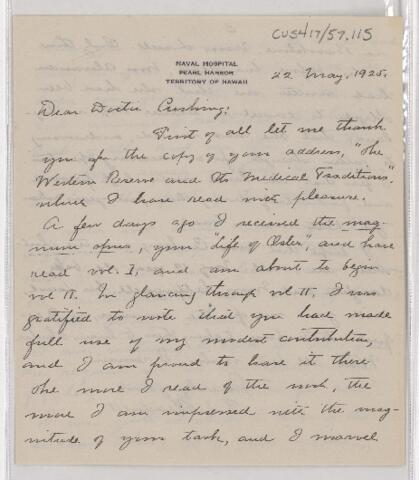 CUS417/57.115
NAVAL HOSPITAL
PEARL HARBOR
TERRITORY OF HAWAII
22 May, 1925.
Dear Doctor Cushing:
First of all let me thank
you for the copy of your address, "The
Western Reserve and Its Medical Traditions",
which I have read with pleasure.
A few days ago I received the mag-
num opus, your "Life of Osler", and have
read vol. I, and am about to begin
vol II. In glancing through vol II, I was
gratified to note that you had made
full use of my modest contribution,
and I am proud to have it there
The more I read of the work, the
more I am impressed with the mag-
nitude of your task, and I marvel